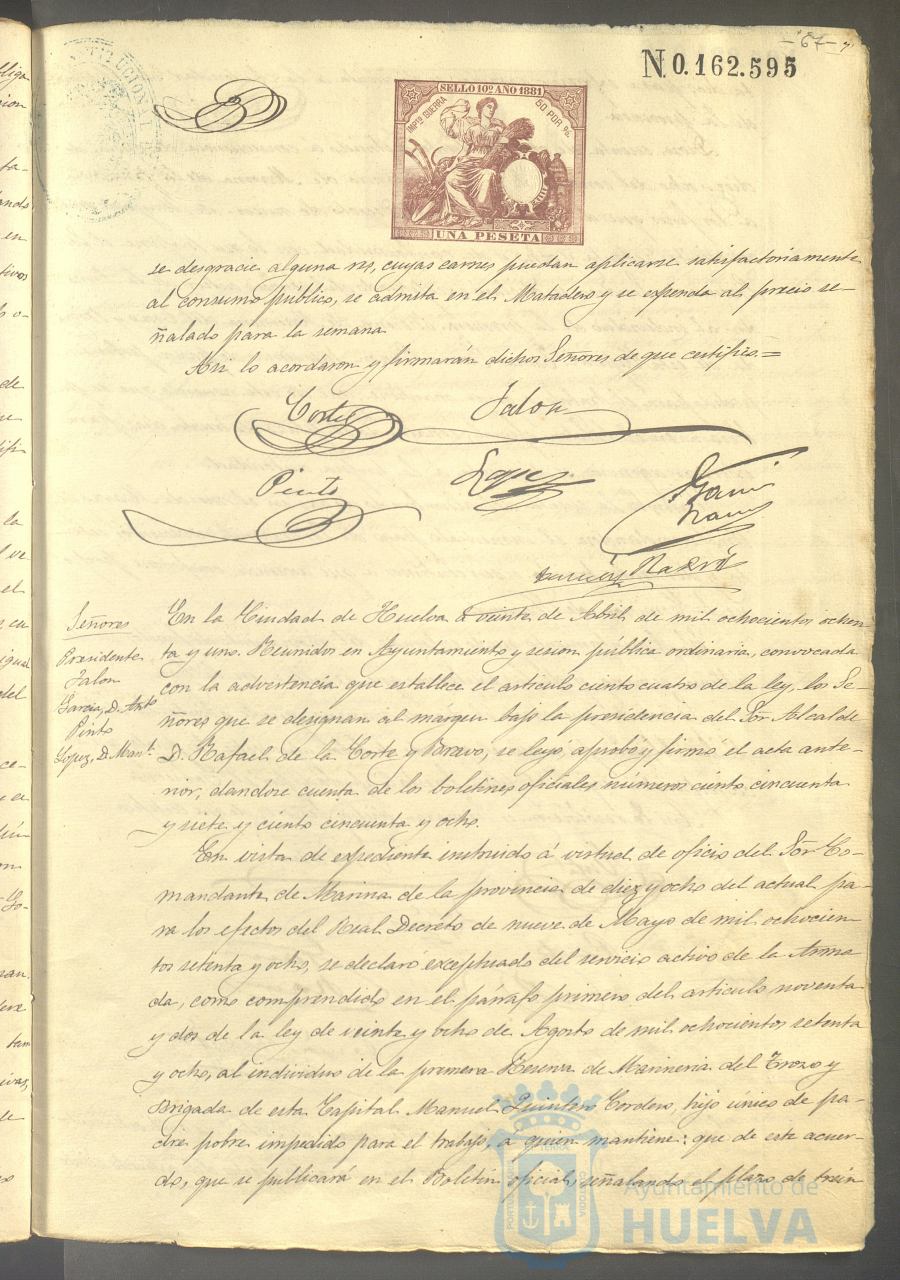 -67-
N.0.162.595
SELLO 10º AÑO 1881
IMPTO GUERRA
50 POR %
UNA PESETA
se desgracie alguna res, cuyas carnes puedan aplicarse satisfactoriamente
al consumo público, se admita en el Matadero y se expenda al precio se-
ñalado para la semana
Asi lo acordaron y firmarán dichos Señores de que certifico.=
Corte
Jalon
Pinto
Lopez
Garcia
Señores
Presidente
Jalon
Garcia, D. Anto
Pinto
Lopez, D. Manl.
En la Ciudad de Huelva a veinte de Abril de mil ochocientos ochen-
ta y uno. Reunidos en Ayuntamiento y sesion pública ordinaria, convocada
con la advertencia que establece el articulo ciento cuatro de la ley, los Se-
ñores que se designan al márgen bajo la presidencia del Sor Alcalde
D. Rafael de la Corte y Bravo, se leyó aprobó y firmó el acta ante-
rior, dandose cuenta de los boletines oficiales números ciento cincuenta
y siete y ciento cincuenta y ocho.
En vista de expediente instruido á virtud de oficio del Sor Co-
mandante de Marina de la provincia de diez y ocho del actual pa-
ra los efectos del Real Decreto de nueve de Mayo de mil ochocien-
tos setenta y ocho, se declaró exceptuado del servicio activo de la Arma-
da, como comprendido en el párrafo primero del articulo noventa
y dos de la ley de veinte y ocho de Agosto de mil ochocientos setenta
y ocho, al individuo de la primera Reserva de Marineria del Trozo y
Brigada de esta Capital Manuel Quintero Cordero, hijo único de pa-
dre pobre impedido para el trabajo, a quien mantiene: que de este acuer-
do, que se publicará en el Boletin oficial, señalando el plazo de trein
Ayuntamiento de
HUELVA